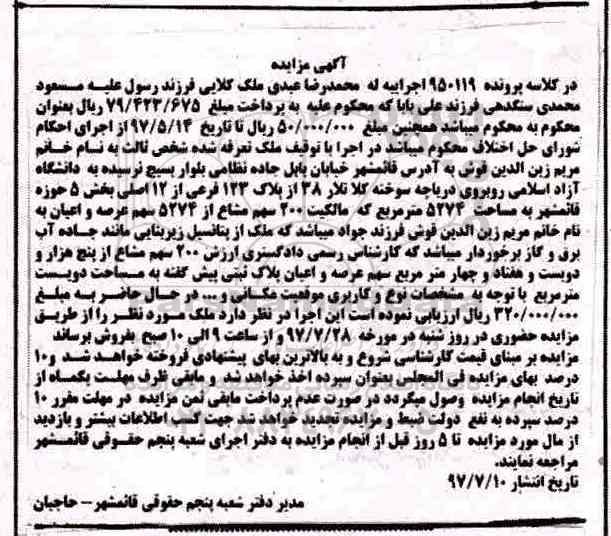 آگهی مزایده
در کلاسه پرونده ۹۵۰۱۱۹ اجراییه له محمدرضا عبدی ملک کلایی فرزند رسول علیه مسعود
محمدی سنگدهی فرزند علی بابا که محکوم علیه به پرداخت مبلغ ۷۹/۴۲۳/۶۷۵ ریال بعنوان
محکوم به محکوم میباشد همچنین مبلغ ۵۰/۰۰۰/۰۰۰ ریال تا تاریخ ۹۷/۵/۱۴ از اجرای احکام
شورای حل اختلاف محکوم میباشد در اجرا با توقیف ملک تعرفه شده شخص ثالث به نام خانم
مریم زین الدین فوش به آدرس قائمشهر خیابان بابل جاده نظامی بلوار بسیج نرسیده به دانشگاه
آزاد اسلامی روبروی دریاچه سوخته کلا تلار ۳۸ از پلاک ۱۲۳ فرعی از ۱۲ اصلی بخش ۵ حوزه
قائمشهر به مساحت ۵۲۷۴ مترمربع که مالکیت ۲۰۰ سهم مشاع از ۵۲۷۴ سهم عرصه و اعیان به
نام خانم مریم زین الدین فوش فرزند جواد میباشد که ملک از پتانسیل زیربنایی مانند جاده آب
برق و گاز برخوردار میباشد که کارشناس رسمی دادگستری ارزش ۲۰۰ سهم مشاع از پنج هزار و
دویست و هفتاد و چهار متر مربع سهم عرصه و اعیان پلاک ثبتی پیش گفته به مساحت دویست
مترمربع با توجه به مشخصات نوع و کاربری موقعیت مکانی و... در حال حاضر به مبلغ
۳۲۰/۰۰۰/۰۰۰ ریال ارزیابی نموده است این اجرا در نظر دارد ملک مورد نظر را از طریق
مزایده حضوری در روز شنبه در مورخه ۹۷/۷/۲۸ و از ساعت ۹ الی ۱۰ صبح بفروش برساند
مزایده بر مبنای قیمت کارشناسی شروع و به بالاترین بهای پیشنهادی فروخته خواهد شد و ۱۰
درصد بهای مزایده فی المجلس بعنوان سپرده اخذ خواهد شد و مابقی ظرف مهلت یکماه از
تاریخ انجام مزایده وصول میگردد در صورت عدم پرداخت مابقی ثمن مزایده در مهلت مقرر ۱۰
درصد سپرده به نفع دولت ضبط و مزایده تجدید خواهد شد جهت کسب اطلاعات بیشتر و بازدید
از مال مورد مزایده تا ۵ روز قبل از انجام مزایده به دفتر اجرای شعبه پنجم حقوقی قائمشهر
مراجعه نمایند.
تاریخ انتشار ۹۷/۷/۱۰
مدیر دفتر شعبه پنجم حقوقی قائمشهر – حاجیان